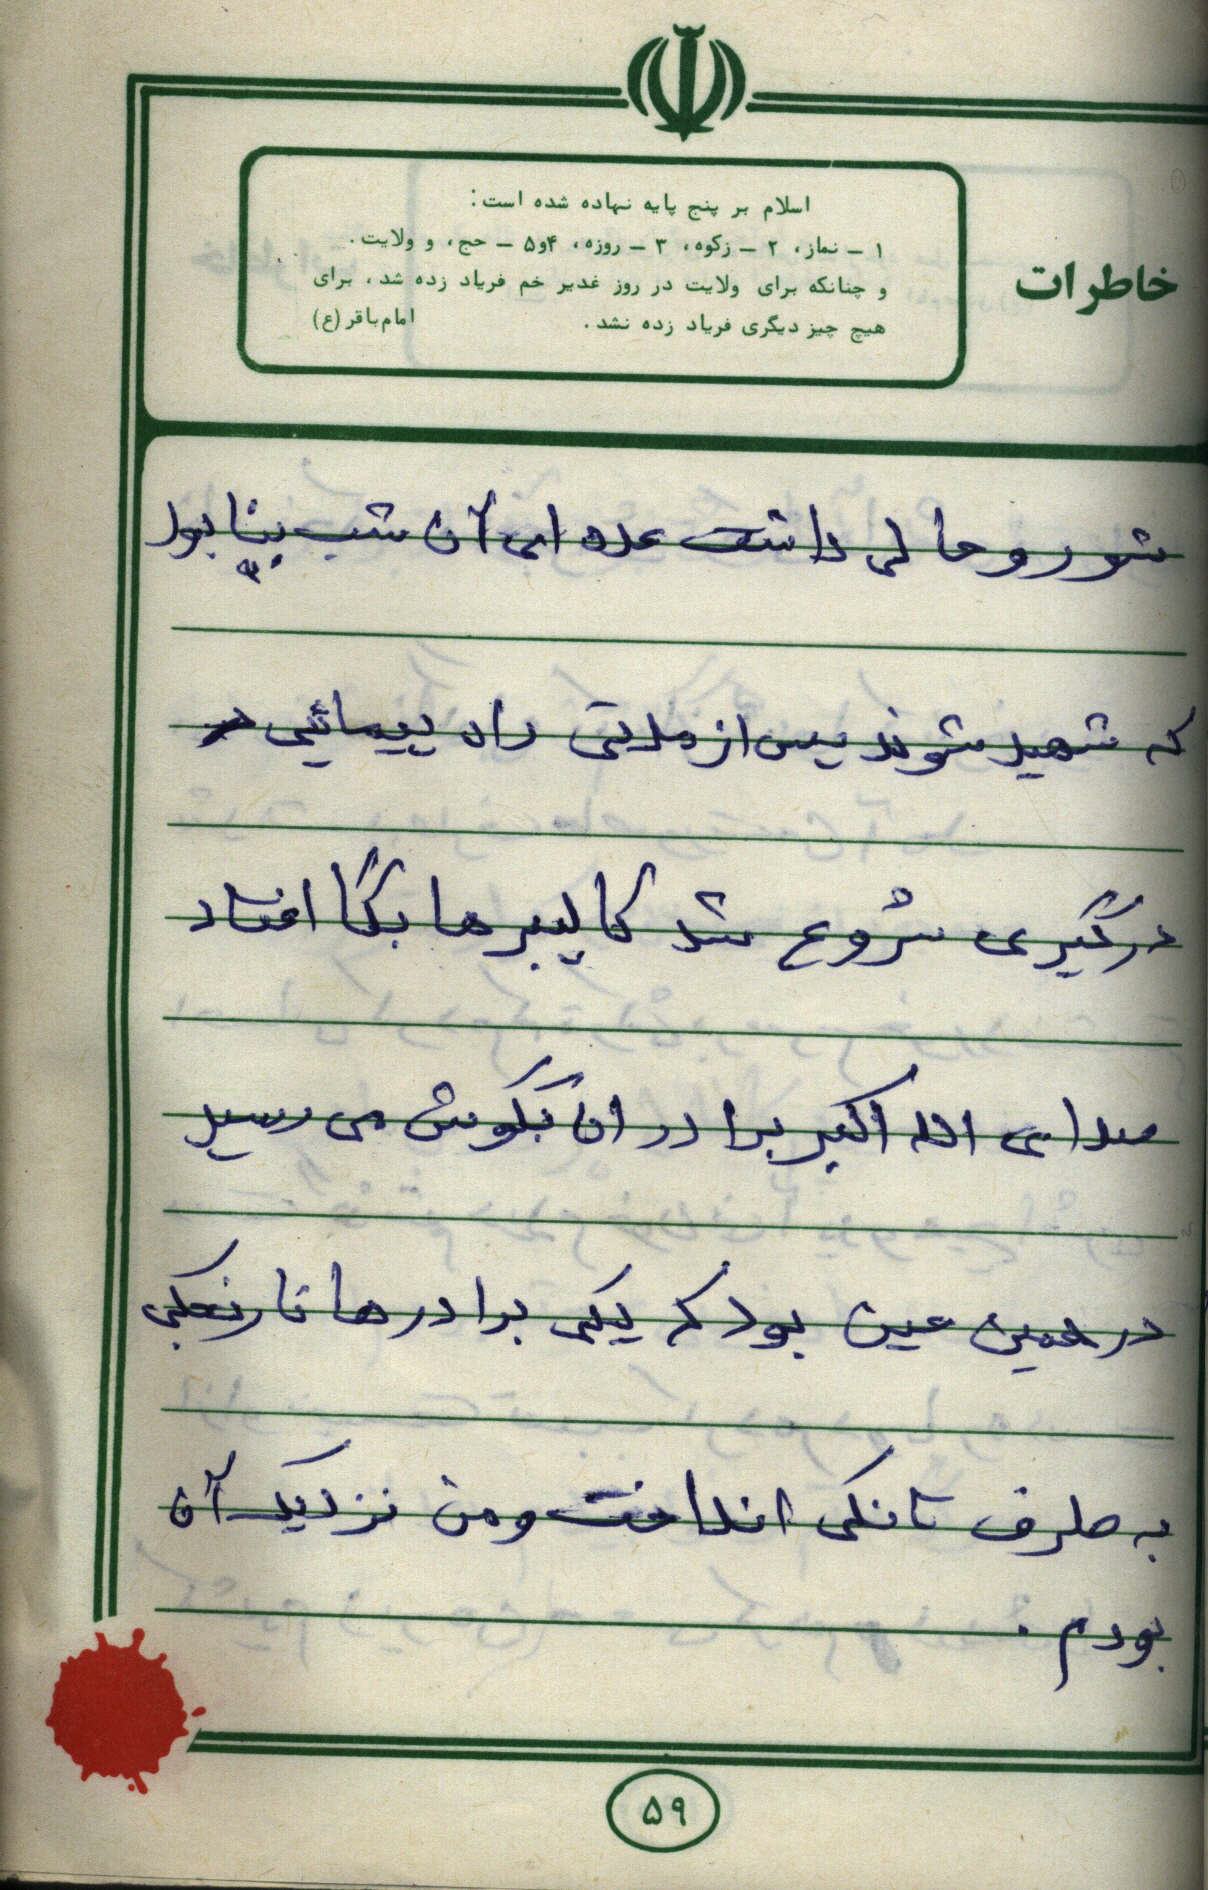 اسلام بر پنج پایه نهاده شده است:
۱ – نماز، ۲ – زکوه، ۳ – روزه، ۴و۵ – حج، و ولایت.
و چنانکه برای ولایت در روز غدیر خم فریاد زده شد، برای
هیچ چیز دیگری فریاد زده نشد. امام باقر (ع)
خاطرات
شور و حالی داشت عده ای آن شب بنا بود
که شهید شوند پس از مدتی راه پیمائی
درگیری شروع شد کالیبرها بکا افتاد
صدای الله اکبر برادران بگوش می رسید
در همین عین بود که یکی برادرها نارنجکی
به طرف تانکی انداخت و من نزدیک آن
بودم.
۵۹